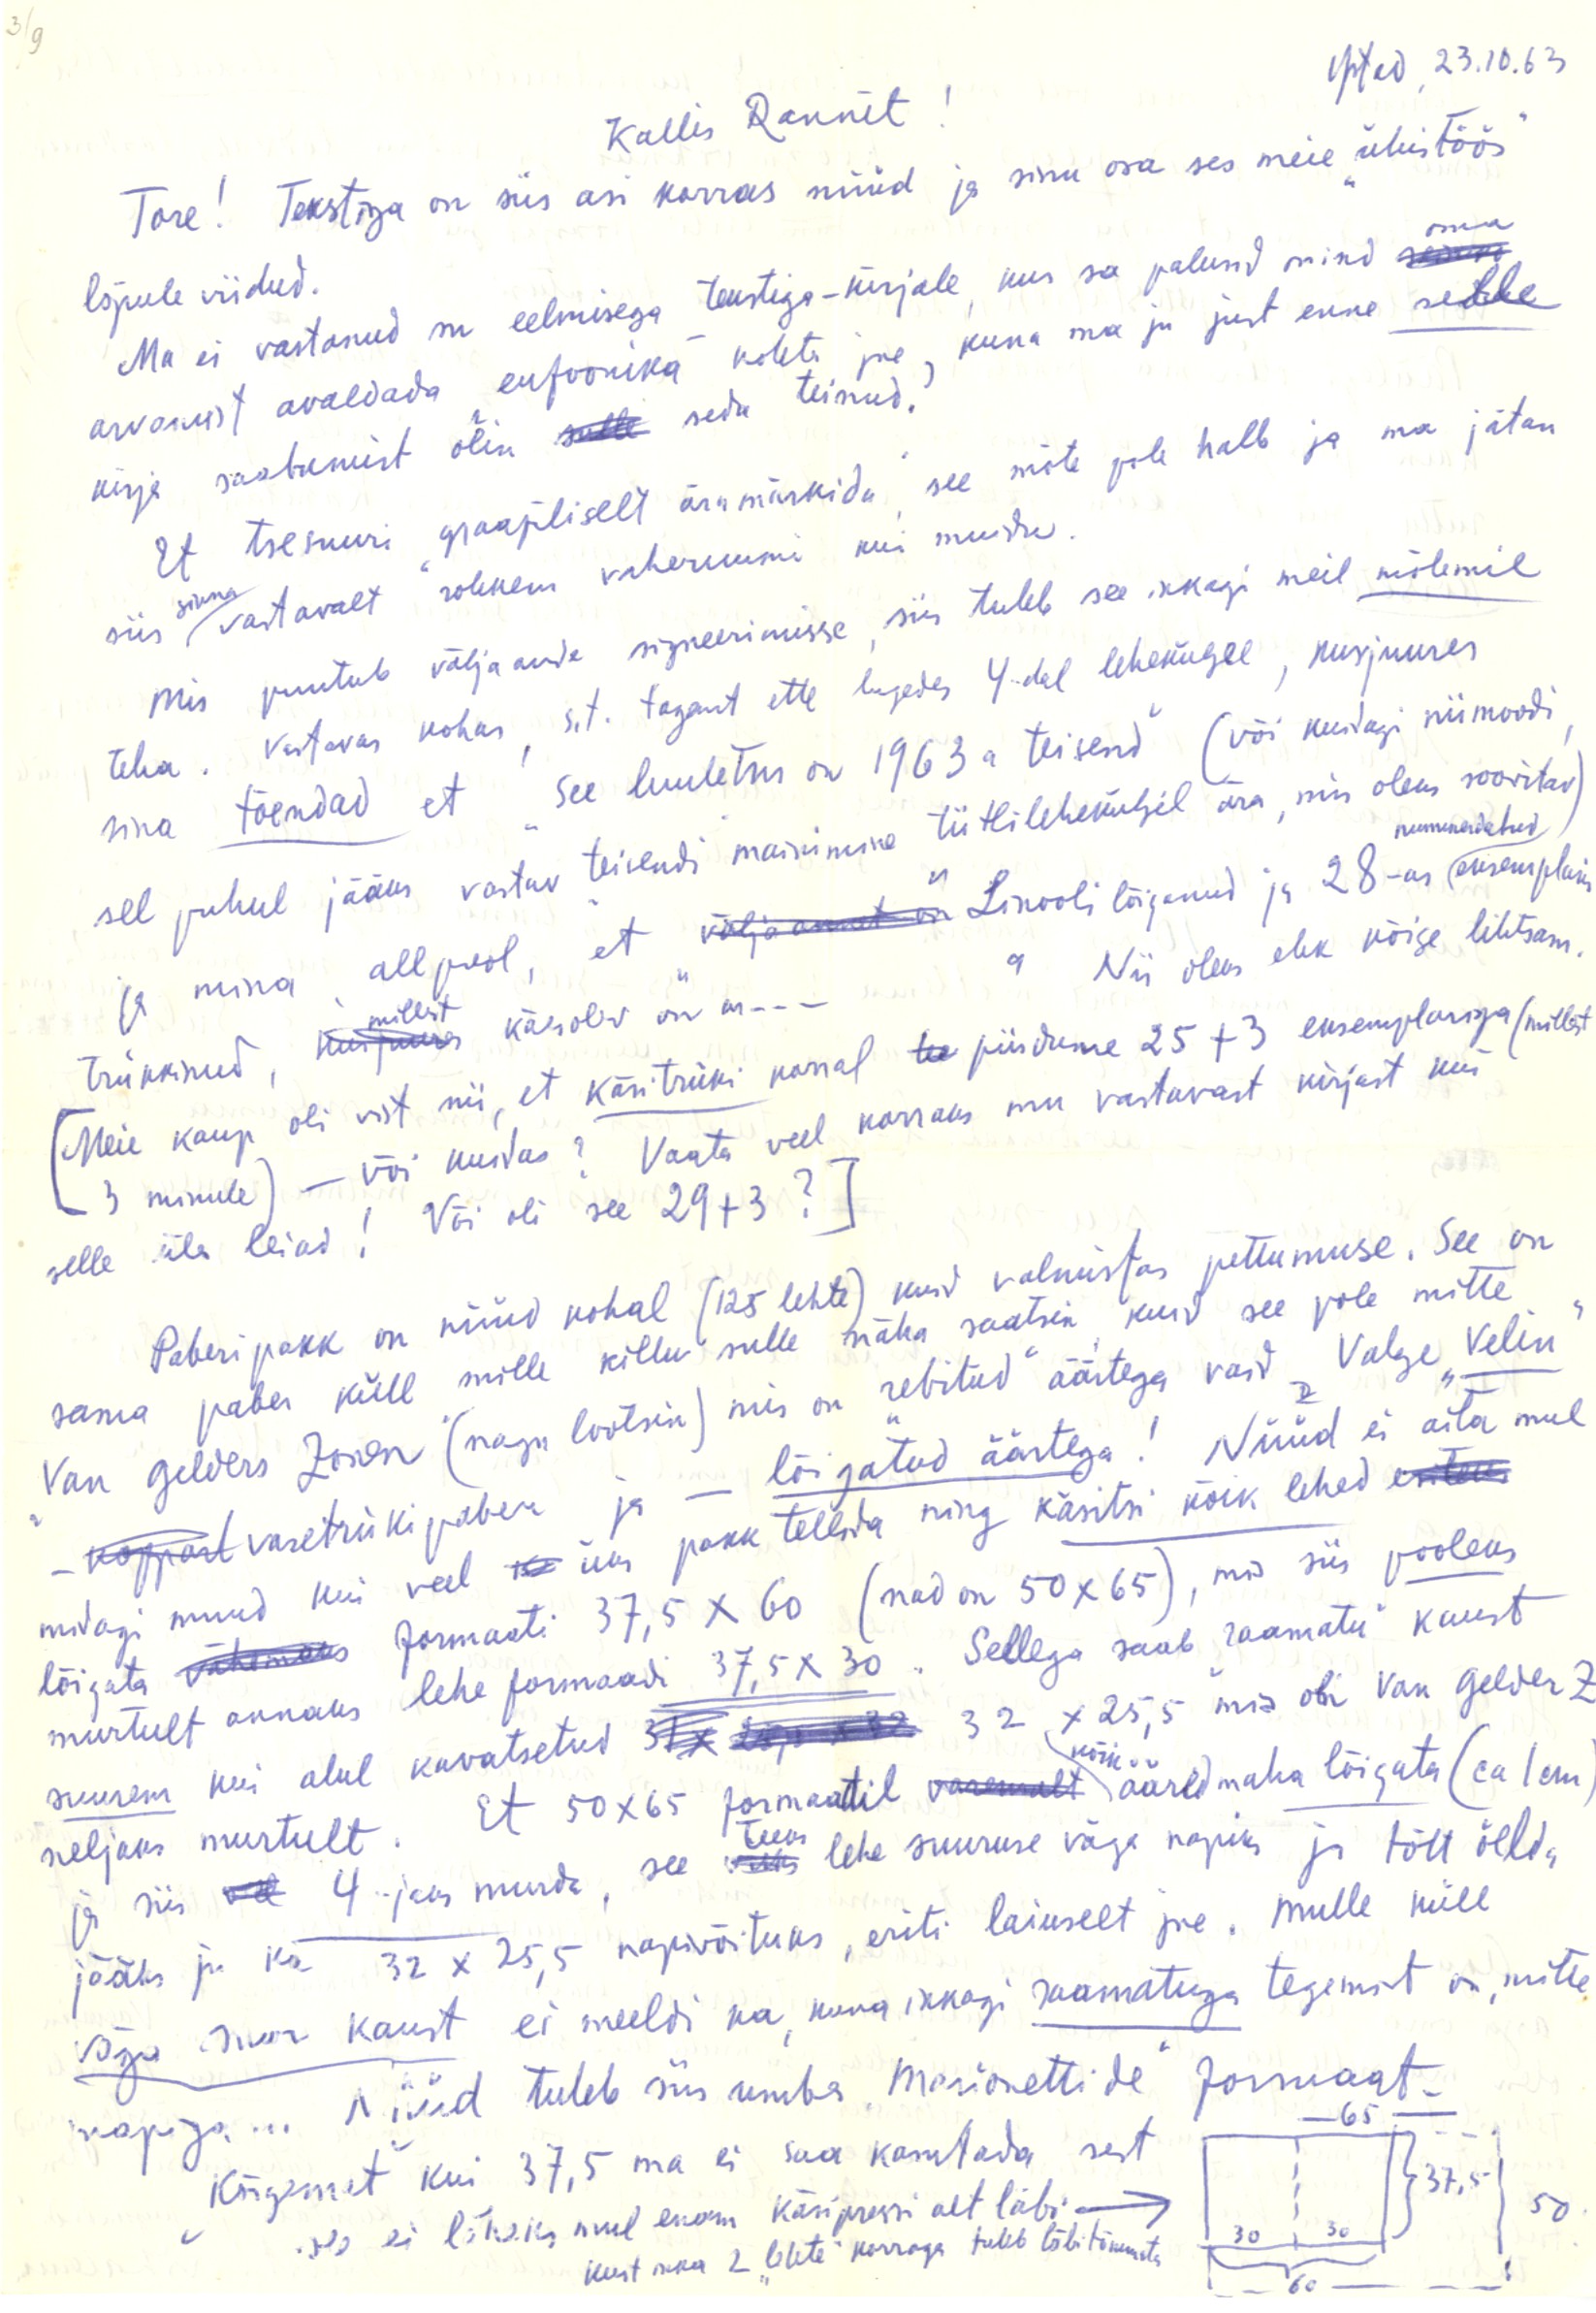 3/9
23.10.63
Kallis Rannit!
Tore! Tekstiga on siis asi korras nüüd ja sinu osa ses meie „ühistöös"
lõpule viidud.
Ma ei vastanud su eelmisega tekstiga-kirjale, kus sa palusid mind oma
arvamist avaldada „eufoonika" kohta jne, kuna ma ju just enne selle
kirja saabumist olin seda teinud?
Et tsesuuri „graafiliselt äramärkida", see mõte pole halb ja ma jätan
siis sinna vastavalt rohkem vaheruumi kui muidu.
Mis puutub väljaande signeerimisse, siis tuleb see ikkagi meil mõlemil
teha. Vastavas kohas, s.t. tagant ette lugedes 4-dal leheküljel, kusjuures
sina tõendad et „See luuletus on 1963 a teisend" (või kuidagi niimoodi,
sel puhul jääks vastav „teisendi" mainimine tiitlileheküljel ära, mis oleks soovitav)
ja mina allpool, et „Linooli lõiganud ja 28-as nummerdatud eksemplaris
trükkinud, millest käesolev on nr---" Nii oleks ehk kõige lihtsam.
[Meie kaup oli vist nii, et käsitrüki korral piirdume 25+3 eksemplariga (millest
3 minule) — või kuidas? Vaata veel korraks mu vastavast kirjast kui
selle üles leiad! Või oli see 29+3?]
Paberipakk on nüüd kohal (125 lehte) kuid valmistas pettumuse. See on
sama paber küll mille killu sulle näha saatsin, kuid see pole mitte
„Van Gelders Zonen" (nagu lootsin) mis on „rebitud" äärtega vaid Valge „Velin"
- vasetrükipaber ja — lõigatud äärtega! Nüüd ei aita mul
midagi muud kui veel üks pakk tellida ning käsitsi kõik lehed
lõigata formaati 37,5 x 60 (nad on 50x65), mis siis pooleks
murtult annaks lehe formaadi 37,5 x 30. Sellega saab raamatu kaust
suurem kui alul kavatsetud 32 x 25,5 mis oli Van Gelder Z
neljaks murtult. Et 50x65 formaatil kõik ääred maha lõigata (ca 1 cm)
ja siis 4-jaks murda, see teeks lehe suuruse väga napiks ja tõtt öelda
jääks ju ka 32 x 25,5 napivõituks, eriti laiuselt jne. Mulle küll
väga suur kaust ei meeldi ka, kuna ikkagi raamatuga tegemist on, mitte
mapiga... Nüüd tuleb siis umbes „Marionettide" formaat-
„Kõrgemat" kui 37,5 ma ei saa kasutada sest
see ei läheks mul enam käsipressi alt läbi →
kust mina 2 „lehte" korraga tuleb läbi tõmmata
65
37,5
50
30 30
60